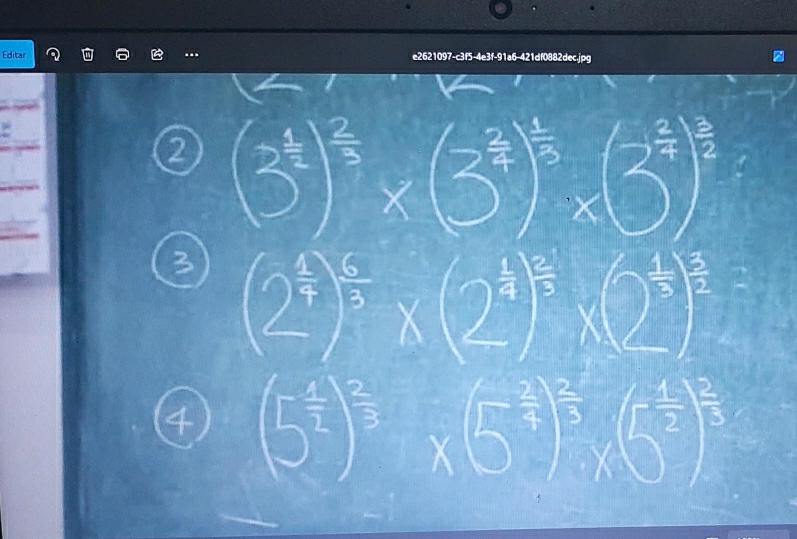 Editar
e2621097-c3f5-4e3f-91a6-421df0882dec.jpg
② (3^{1/2})^{2/3} × (3^{2/4})^{1/3} × (3^{2/4})^{3/2}
③ (2^{1/4})^{6/3} × (2^{1/4})^{2/3} × (2^{1/3})^{3/2}
④ (5^{1/2})^{2/3} × (5^{2/4})^{2/3} × (5^{1/2})^{2/3}